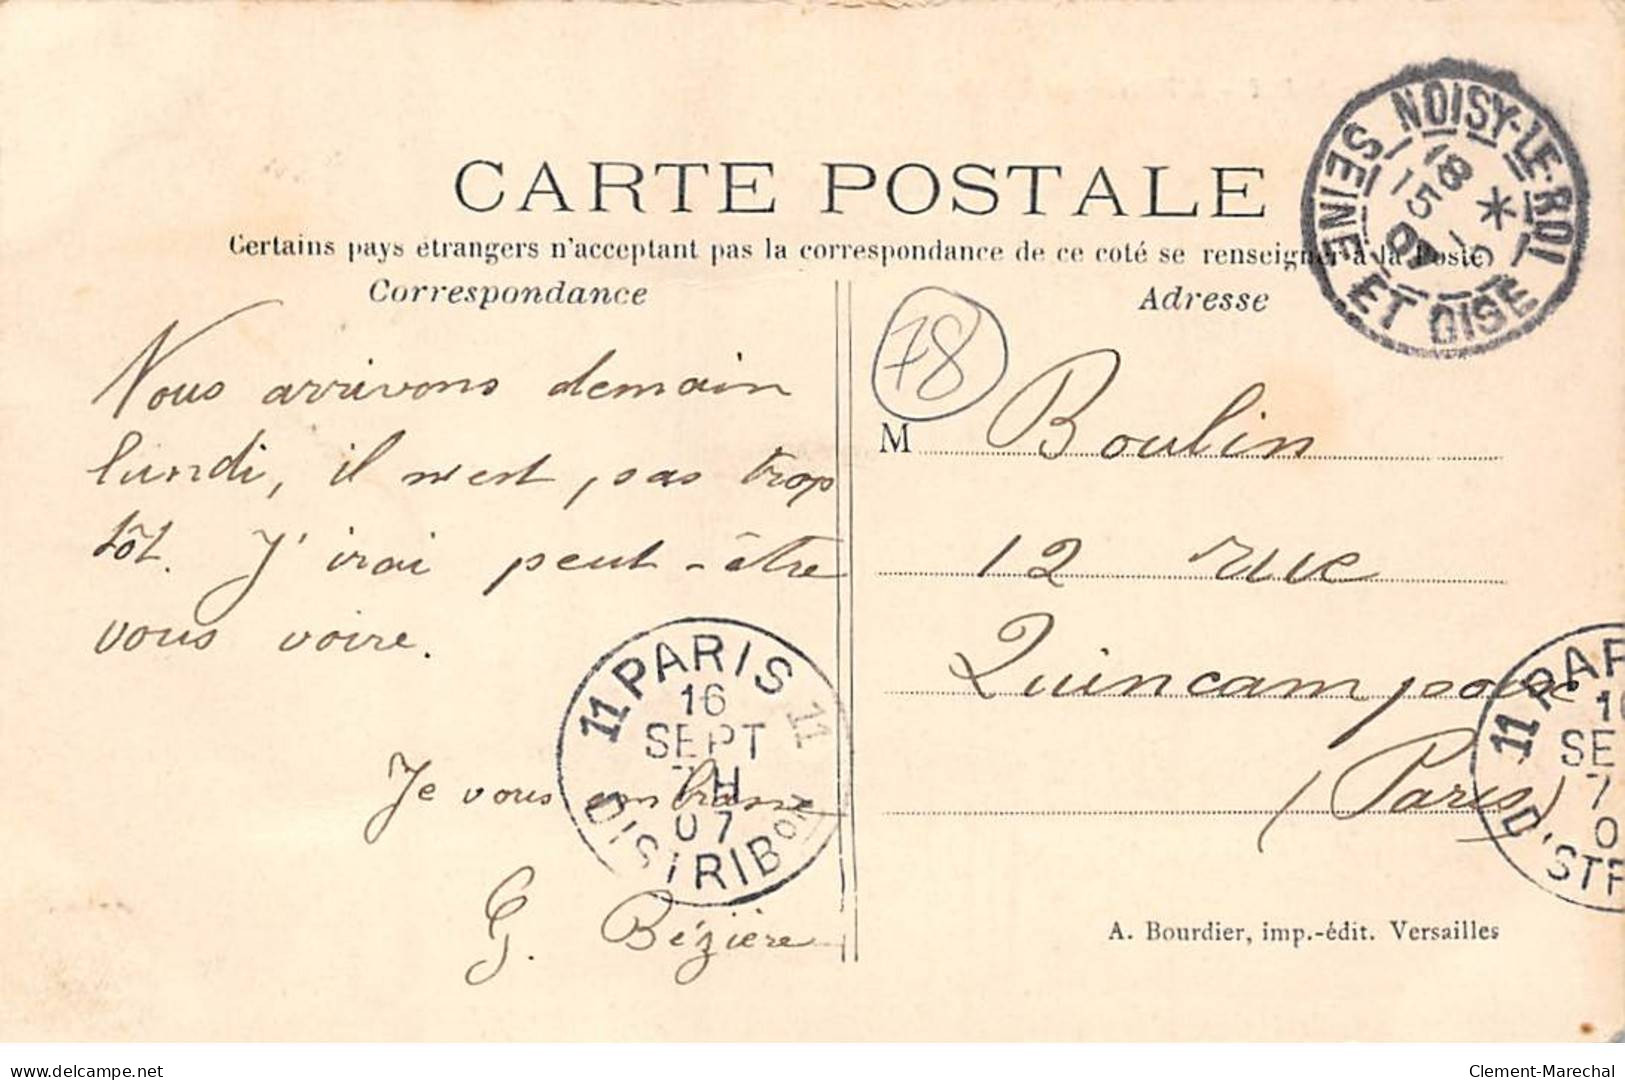 CARTE POSTALE
Certains pays étrangers n'acceptant pas la correspondance de ce coté se renseigner à la Poste
Correspondance
Nous arrivons demain
lundi, il n'est pas trop
tôt. J'irai peut-être
vous voire.
Je vous embrasse
G. Bézière
Adresse
78
M Boulin
12 rue
Quincampoix
(Paris)
NOISY-LE-ROI
SEINE ET OISE
18
15
07
11 PARIS 11
16
SEPT
7H
07
DISTRIBON
11 PAR
SE
7
0
D'STR
A. Bourdier, imp.-édit. Versailles
delcampe.net
Clement-Marechal